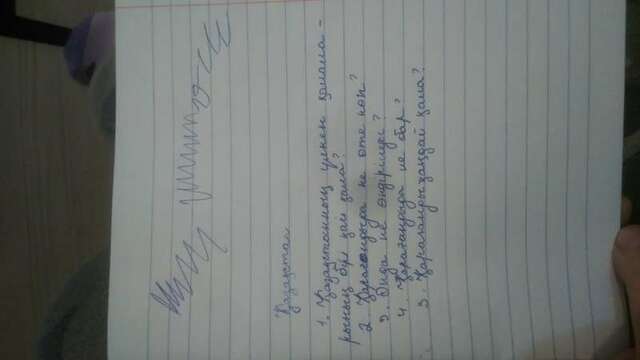 Қазақстан
1. Қазақстанның үлкен қалала-
рының бірі қай қала?
2. Қарағандыда не өте көп?
3. Онда не өндіріледі?
4. Қарағандыда не бар?
5. Қарағанды қандай қала?